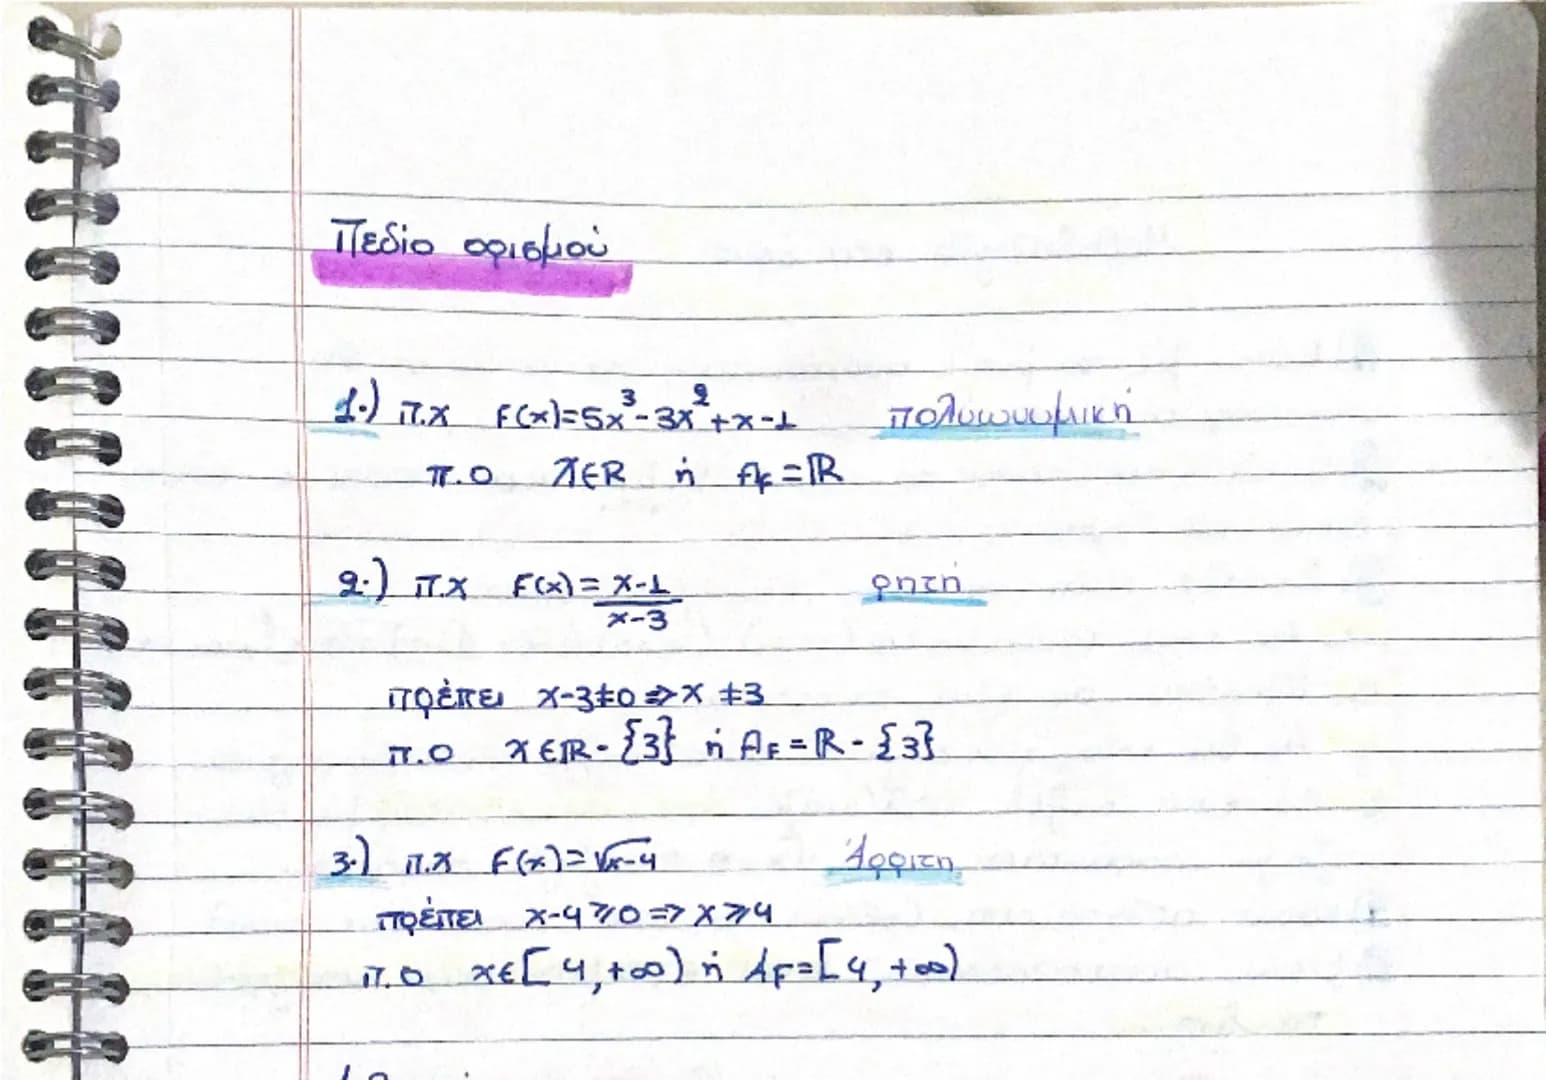 Πεδίο ορισμού
1.) π.χ F(x)=5x³-3x²+x-1 πολυωνυμική
π.ο x∈R ή Af=ℝ
2.) π.χ F(x)=x-1/x-3 ρητή
πρέπει x-3≠0⇒x≠3
π.ο x∈ℝ-{3} ή AF=ℝ-{3}
3.) π.χ F(x)=√x-4 Άρρητη
πρέπει x-4≥0⇒x≥4
π.ο x∈[4,+∞) ή AF=[4,+∞)